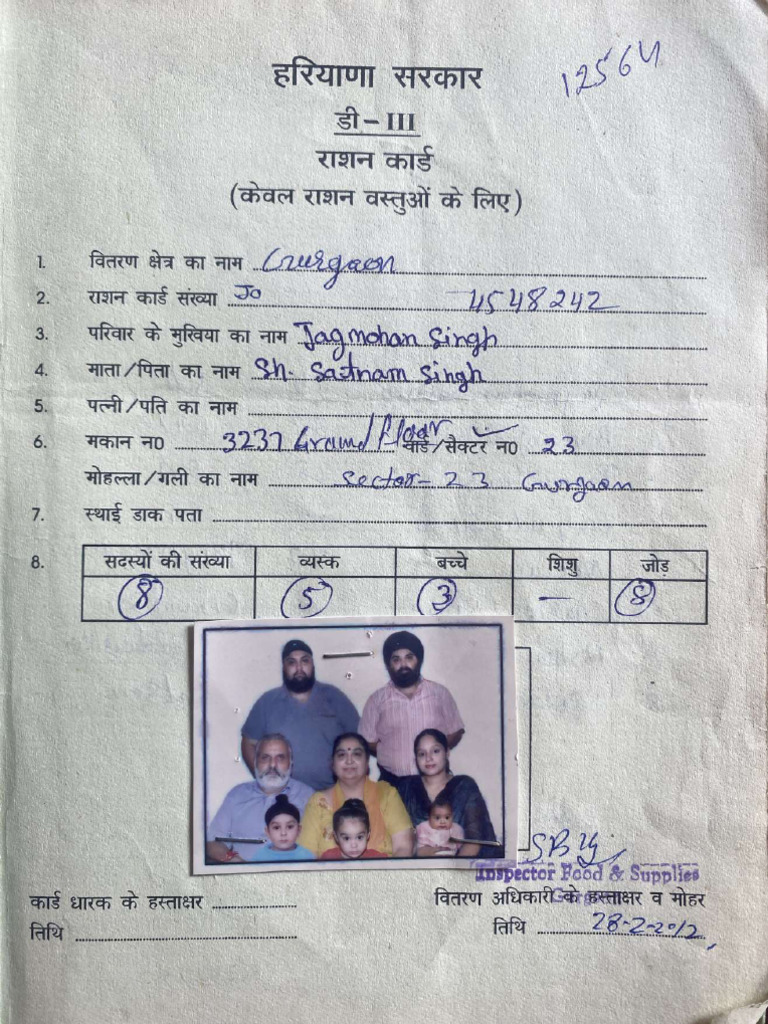 12564
हरियाणा सरकार
डी – III
राशन कार्ड
(केवल राशन वस्तुओं के लिए)
1. वितरण क्षेत्र का नाम Gurgaon
2. राशन कार्ड संख्या Jo 4548242
3. परिवार के मुखिया का नाम Jagmohan Singh
4. माता/पिता का नाम Sh. Satnam Singh
5. पत्नी/पति का नाम
6. मकान न0 3237 Ground Floor वार्ड/सैक्टर न0 23
मोहल्ला/गली का नाम Sector-23 Gurgaon
7. स्थाई डाक पता
8. सदस्यों की संख्या व्यस्क बच्चे शिशु जोड़
8 5 3 — 8
Inspector Food & Supplies
कार्ड धारक के हस्ताक्षर वितरण अधिकारी के हस्ताक्षर व मोहर
तिथि तिथि 28-2-2012